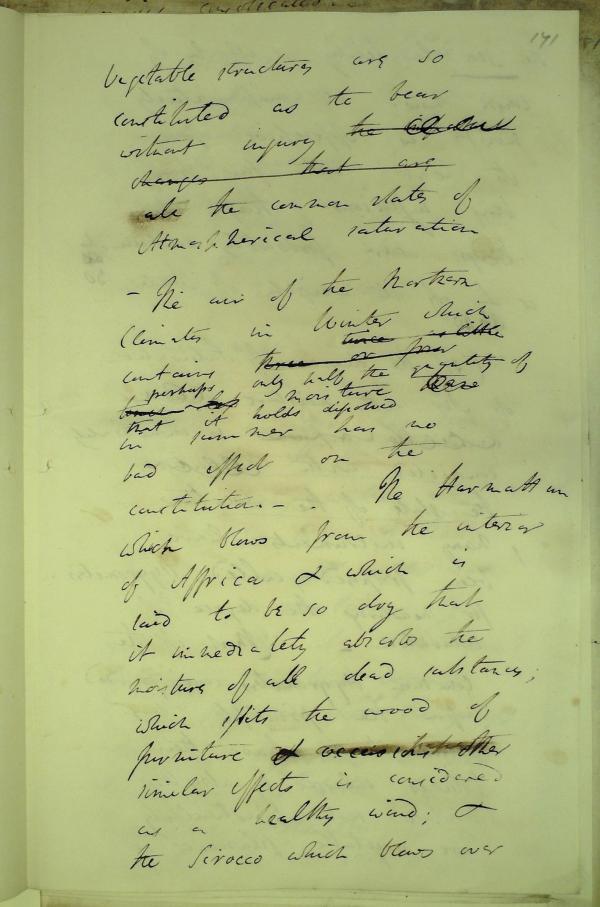 171
vegetable structures are so
constituted as to bear
without injury the
changes that are
all the common states of
Atmospherical saturation
– The air of the Northern
Climates in Winter which
twice as little
contains three or four
perhaps only half the quantity of
moisture
that it holds disposed
in summer has no
bad effect on the
constitution. – . The Harmattan
which blows from the interior
of Affrica & which is
said to be so dry that
it immediately absorbs the
moisture of all dead substances;
which splits the wood of
furniture & occasions other
similar effects is considered
as a healthy wind; &
the Sirocco which blows over